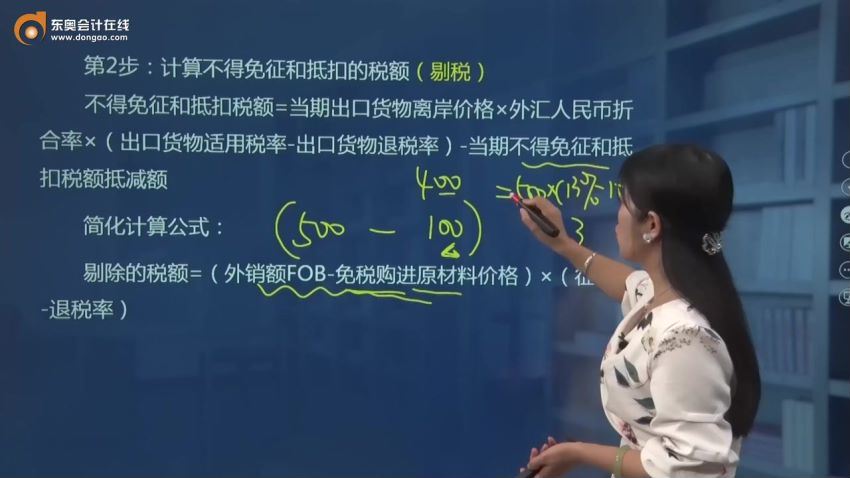 东奥会计在线
www.dongao.com
第2步：计算不得免征和抵扣的税额（剔税）
不得免征和抵扣税额=当期出口货物离岸价格×外汇人民币折
合率×（出口货物适用税率-出口货物退税率）-当期不得免征和抵
扣税额抵减额
400 =500×(13%-10
简化计算公式：（500 — 100） 3
剔除的税额=（外销额FOB-免税购进原材料价格）×（征
-退税率）